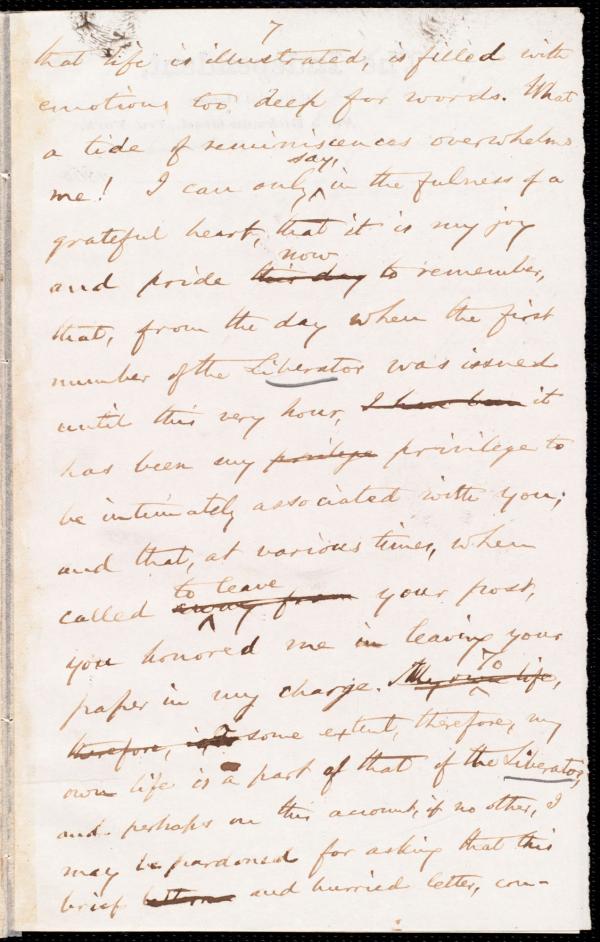 7
that life is illustrated, is filled with
emotions too deep for words. What
a tide of reminiscences overwhelms
say,
me! I can only in the fulness of a
grateful heart, that it is my joy
now
and pride this day to remember,
that, from the day when the first
number of the Liberator was issued
until this very hour, I have been it
has been my privilege privilege to
be intimately associated with you;
and that, at various times, when
to leave
called away from your post,
you honored me in leaving your
paper in my charge. My own life,
To
therefore, is to some extent, therefore, my
own life is a part of that of the Liberator,
and perhaps on this account, if no other, I
may be pardoned for asking that this
brief and hurried letter, con-